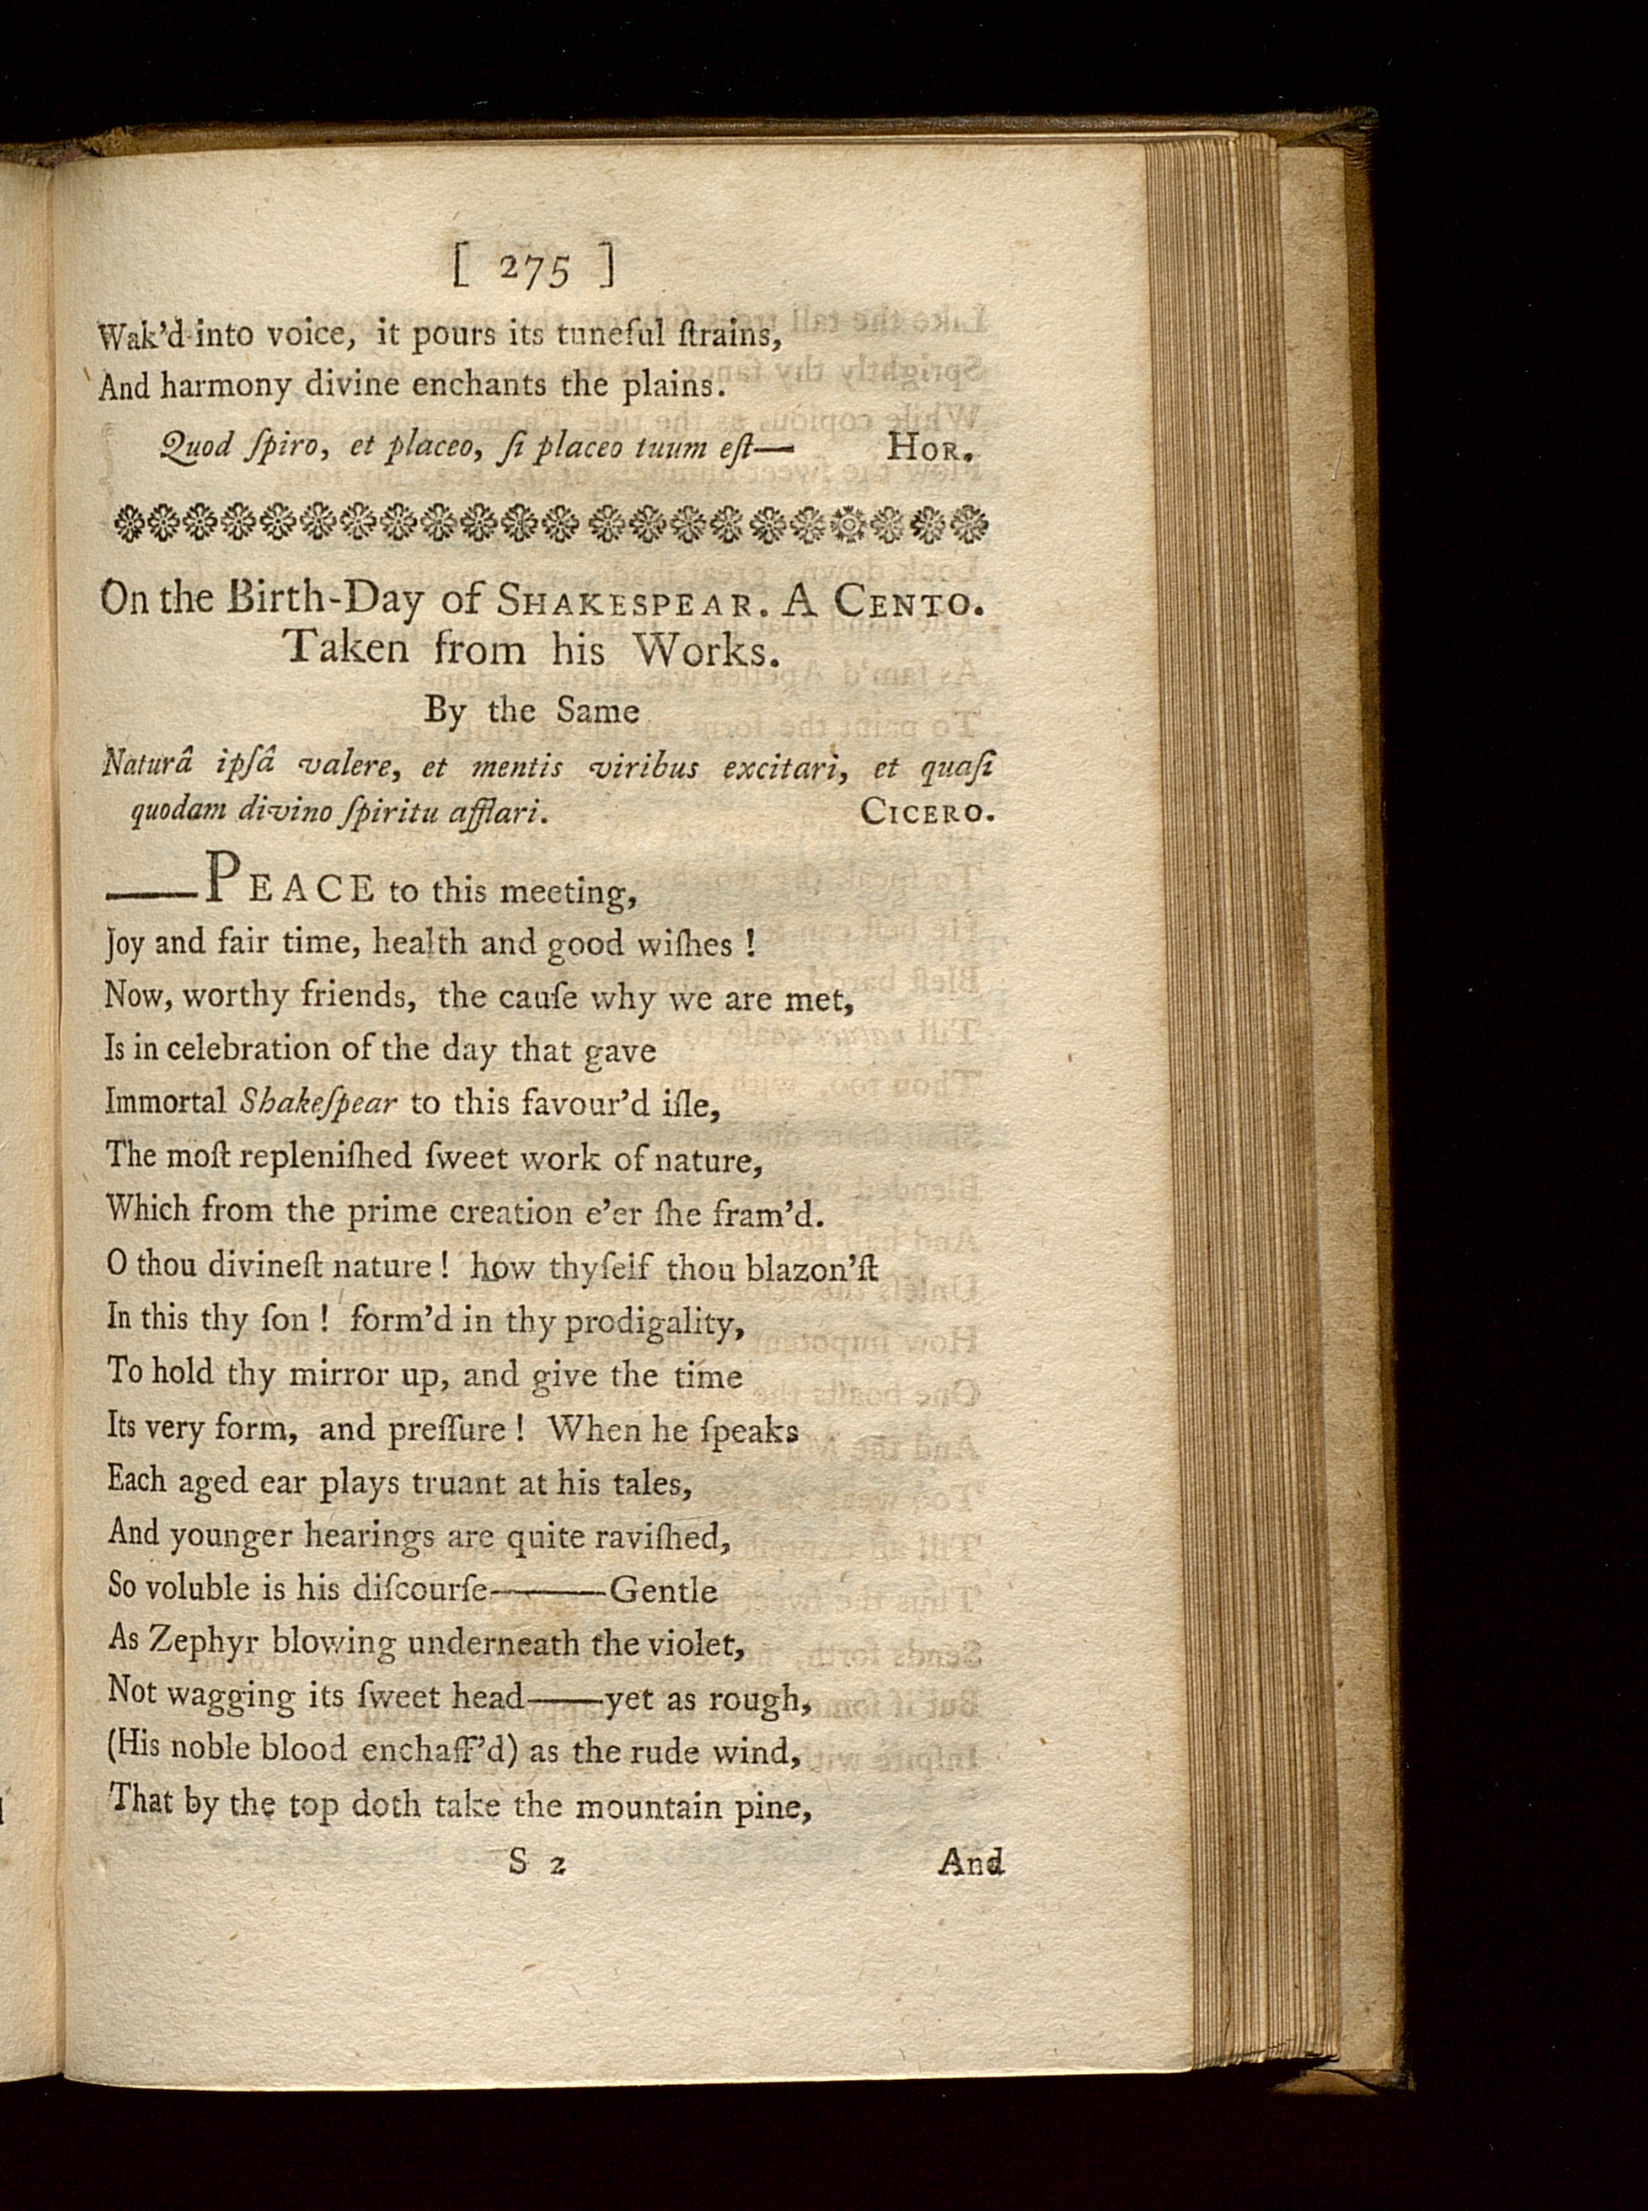 [ 275 ]
Wak'd into voice, it pours its tuneful ſtrains,
And harmony divine enchants the plains.
Quod ſpiro, et placeo, ſi placeo tuum eſt— HOR.
On the Birth-Day of SHAKESPEAR. A CENTO.
Taken from his Works.
By the Same
Naturâ ipſâ valere, et mentis viribus excitari, et quaſi
quodam divino ſpiritu afflari. CICERO.
——PEACE to this meeting,
Joy and fair time, health and good wiſhes !
Now, worthy friends, the cauſe why we are met,
Is in celebration of the day that gave
Immortal Shakeſpear to this favour'd iſle,
The moſt repleniſhed ſweet work of nature,
Which from the prime creation e'er ſhe fram'd.
O thou divineſt nature ! how thyſelf thou blazon'ſt
In this thy ſon ! form'd in thy prodigality,
To hold thy mirror up, and give the time
Its very form, and preſſure ! When he ſpeaks
Each aged ear plays truant at his tales,
And younger hearings are quite raviſhed,
So voluble is his diſcourſe———Gentle
As Zephyr blowing underneath the violet,
Not wagging its ſweet head——yet as rough,
(His noble blood enchaff'd) as the rude wind,
That by the top doth take the mountain pine,
S 2 And